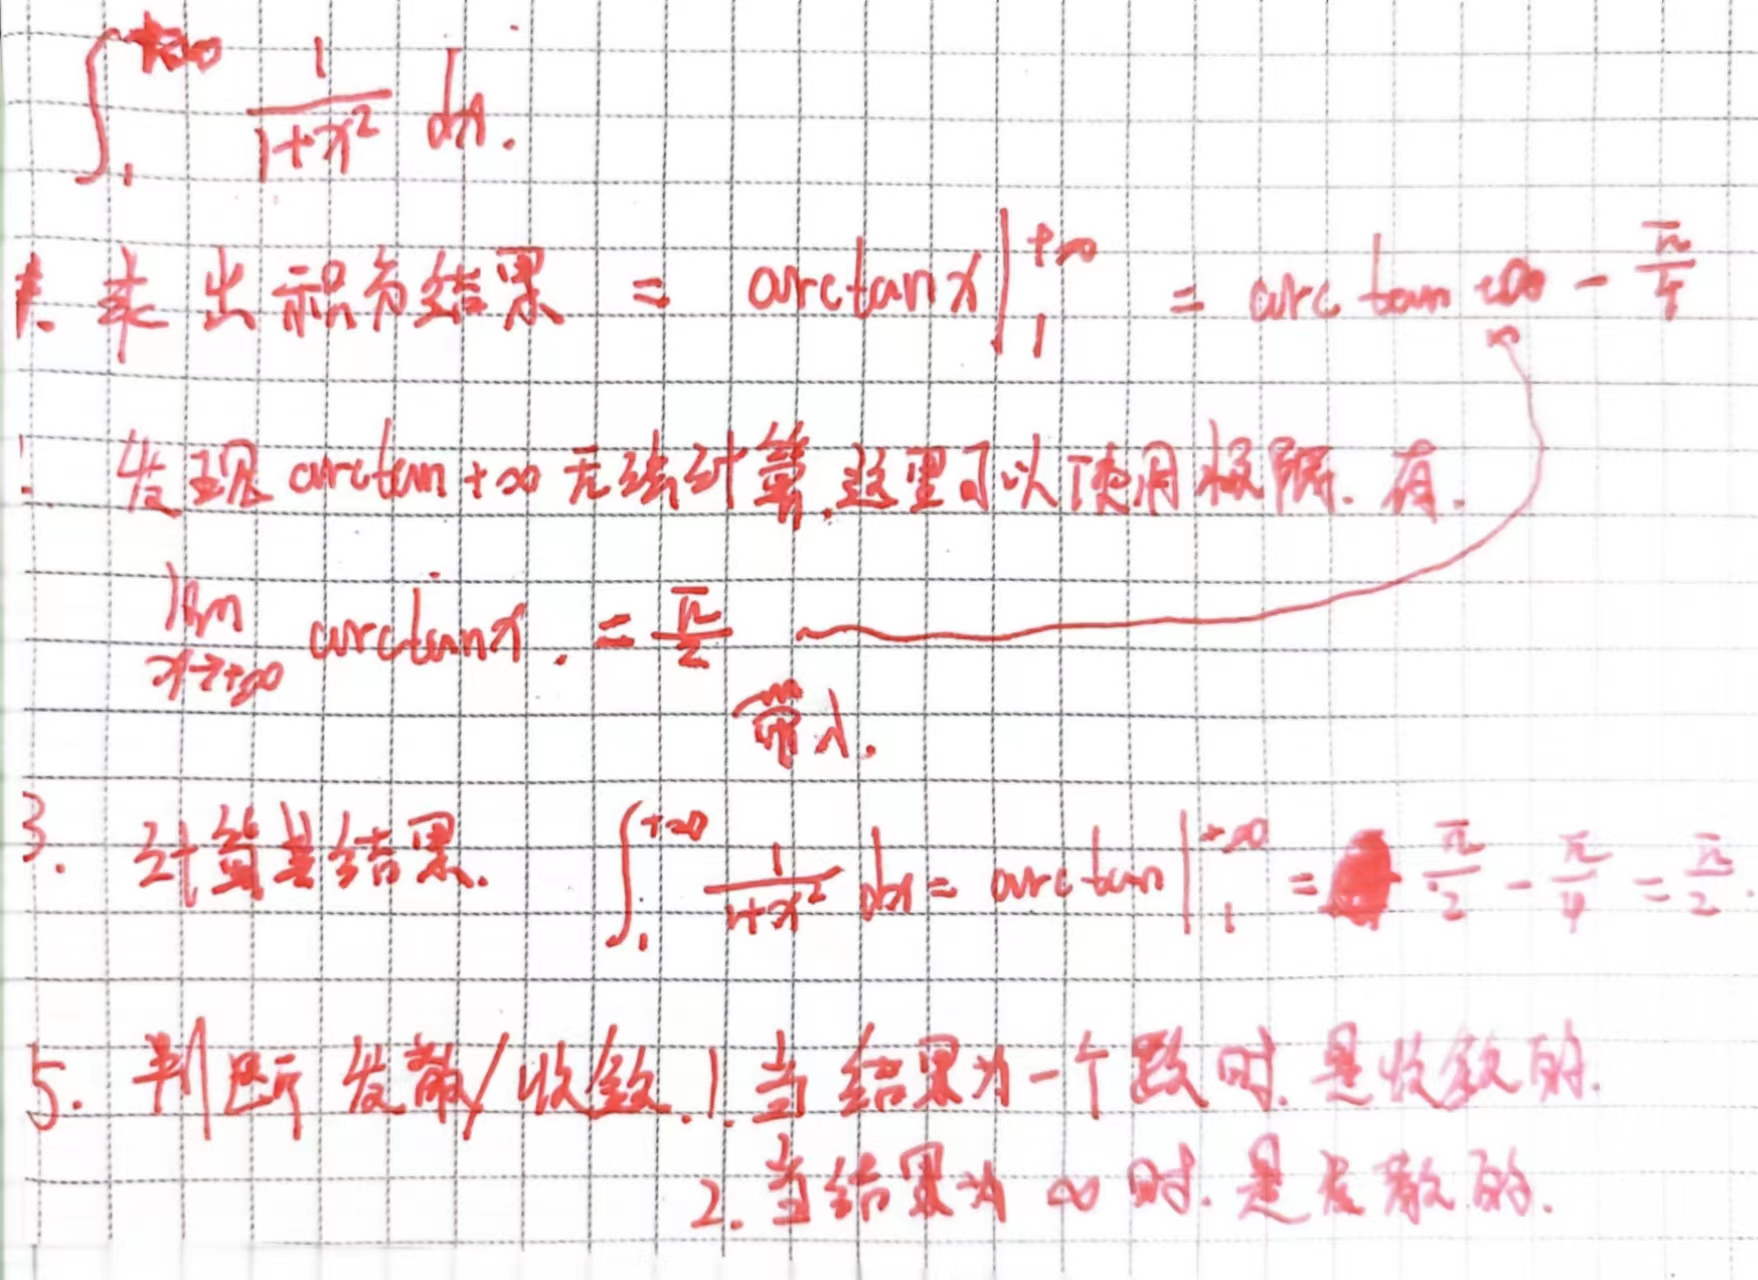 ∫₁^{+∞} 1/(1+x²) dx.
1. 求出积分结果 = arctanx|₁^{+∞} = arctan +∞ - π/4
! 发现 arctan+∞ 无法计算.这里可以使用极限.有.
lim x→+∞ arctanx. = π/2
带入.
3. 计算其结果. ∫₁^{+∞} 1/(1+x²) dx = arctan|₁^{+∞} = π/2 - π/4 = π/2.
5. 判断 发散/收敛.1.当结果为一个数时.是收敛的.
2.当结果为 ∞ 时.是发散的.